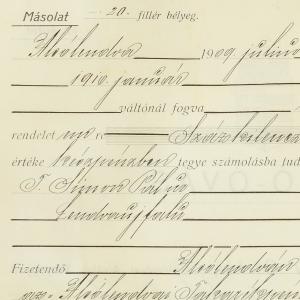 Másolat 20. fillér bélyeg.
Alsólendva 1909 július
1910. január
váltónál fogva
rendelet Százkilencz
értéke készpénzben jegye számolásba tud
T. Simon Pál
Lendvaujfalu
Fizetendő Alsólendván
az Alsólendvai Takarék